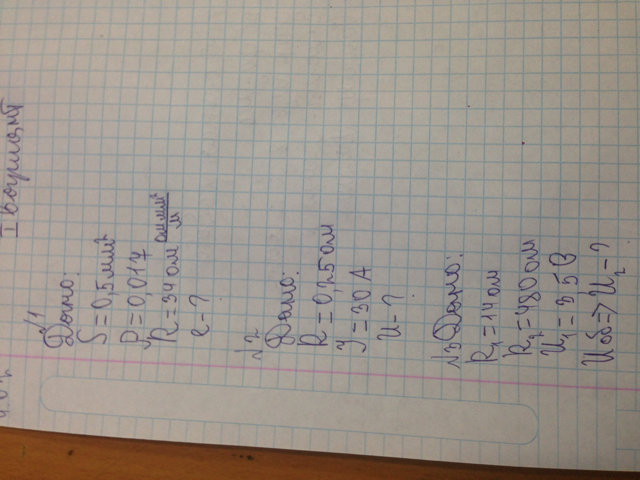 I вариант
№1
Дано:
S=0,5мм²
ρ=0,017
R=34ом ом мм²/м
l-?
№2
Дано:
R=0,25ом
J=30A
U-?
№3 Дано:
R₁=14ом
R₂=480ом
U₁=35В
Uоб=> U₂-?